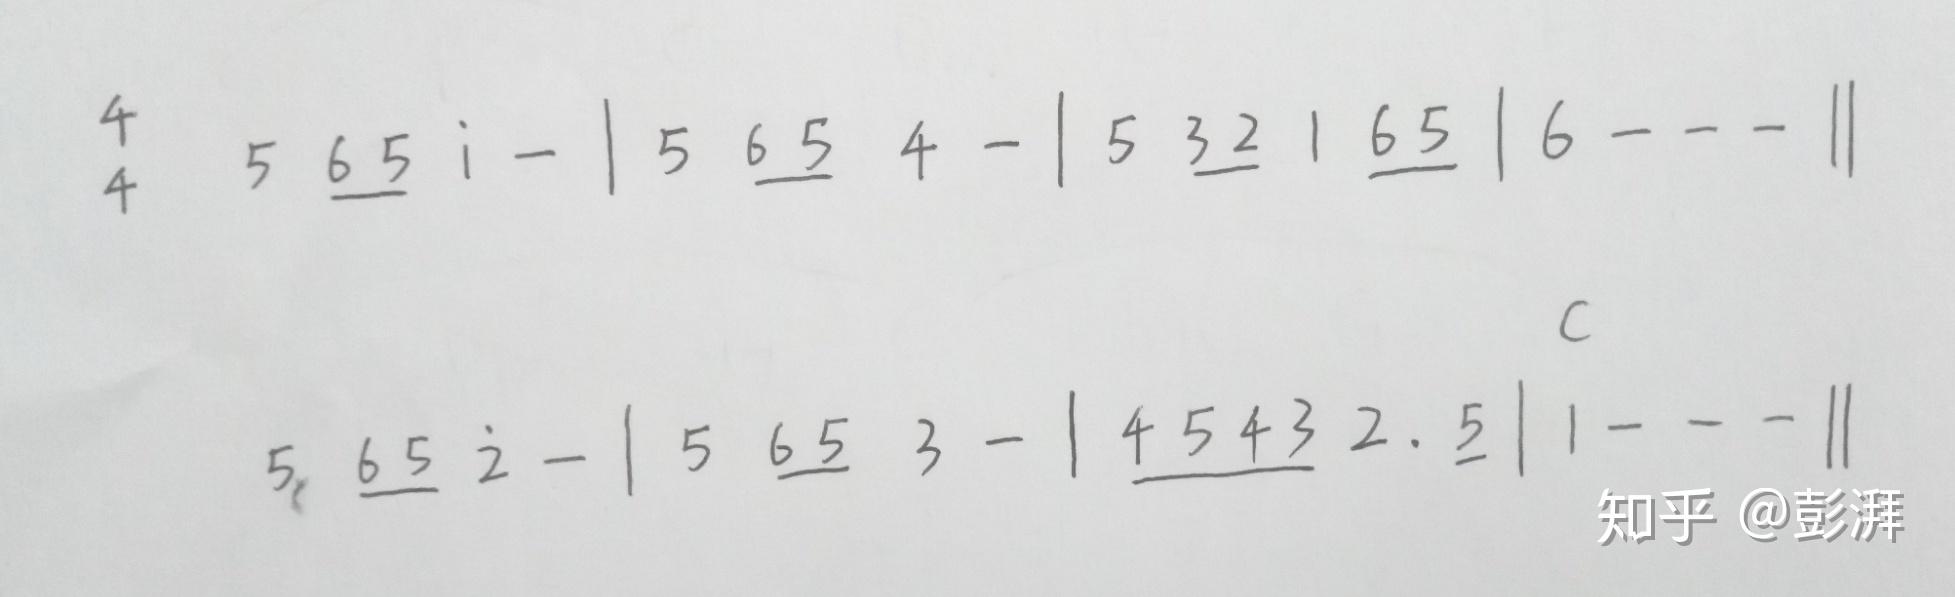 4
4
5 6 5 i - | 5 6 5 4 - | 5 3 2 1 6 5 | 6 - - - ||
C
5 6 5 2̇ - | 5 6 5 3 - | 4 5 4 3 2 . 5 | 1 - - - ||
知乎 @彭湃